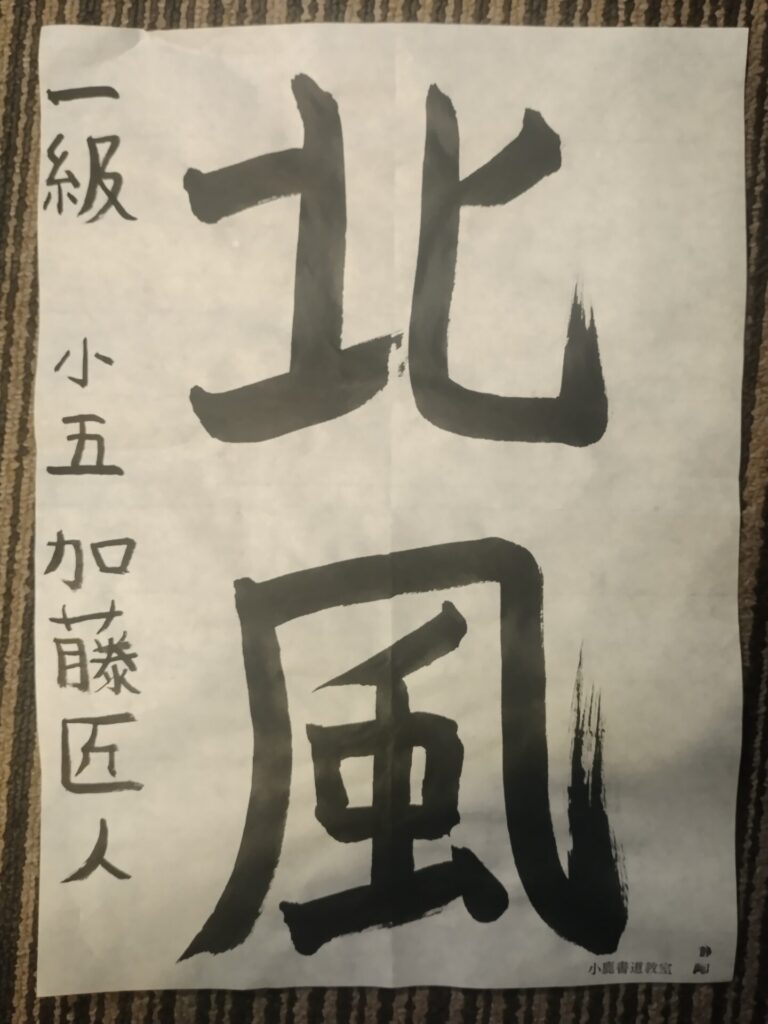 北風
一級 小五 加藤匠人
小鹿書道教室